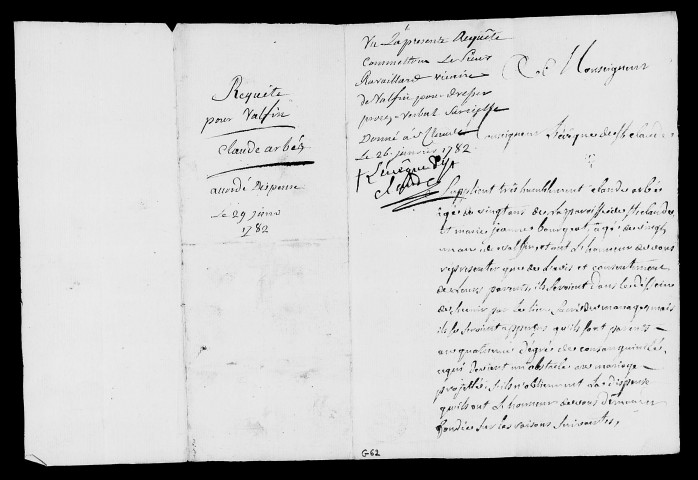 Requête
pour Valfin
Claude arbéz
accordé Dispense
Le 29 janvier
1782
Vu La presente Requête
Commettons Le Sieur
Ravaillard vicaire
de Valfin pour dresser
procez-verbal sur icelle
Donné à St Claude
Le 26. janvier 1782
† L'évêque De St
Claude
A Monseigneur
Monseigneur L'évêque de St Claude
Supplient très humblement Claude arbé
agé de vingt ans de la paroisse de St Claude
et marie jeanne bourgeat, agée de vingt
un an de Valfin et ont L'honneur de vous
représenter que de L'avis et consentement
de Leurs parents, ils seroient dans le dessein
de s'unir par les liens sacrés du mariage, mais
ils se seroient apperçus qu'ils sont parents
au quatrieme dégré de consanguinité,
ce qui devient un obstacle au mariage
projetté, s'ils n'obtiennent La dispense
qu'ils ont L'honneur de vous demander
fondée sur les raisons suivantes,
G62